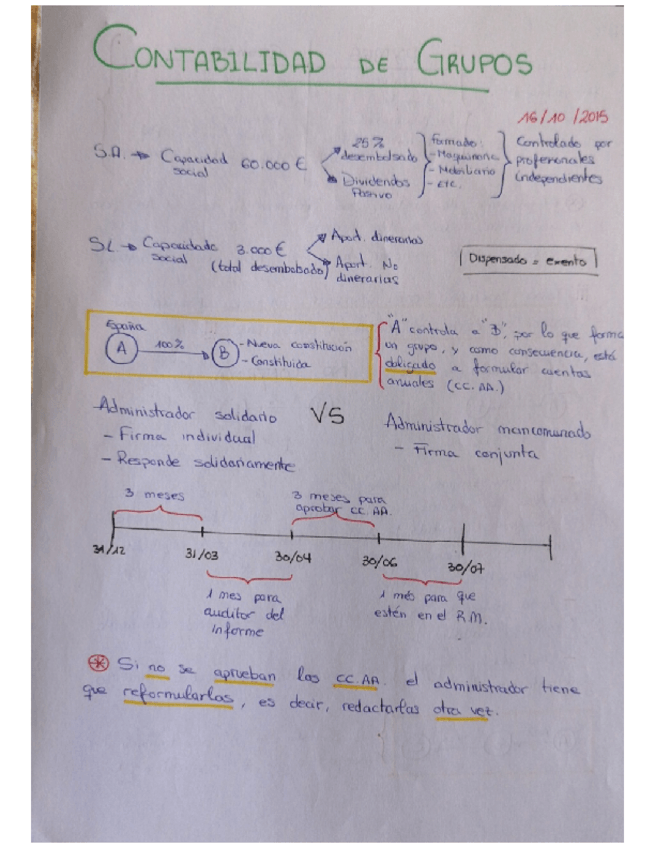 CONTABILIDAD DE GRUPOS
16/10/2015
S.A. → Capacidad social 60.000 €
25% desembolsado
Dividendos Pasivo
formado:
- Maquinaria
- Mobiliario
- ETC.
Controlado por
profesionales
independientes
SL → Capacidad social 3.000 €
(total desembolsado)
Aport. dinerarias
Aport. No
dinerarias
Dispensado = exento
España
A 100% B
- Nueva constitución
- Constituida
"A" controla a "B", por lo que forma
un grupo, y como consecuencia, está
obligado a formular cuentas
anuales (CC.AA.)
Administrador solidario
- Firma individual
- Responde solidariamente
VS
Administrador mancomunado
- Firma conjunta
3 meses
3 meses para
aprobar CC.AA.
31/12 31/03 30/04 30/06 30/07
1 mes para
auditor del
informe
1 mes para que
estén en el R.M.
* Si no se aprueban las CC.AA. el administrador tiene
que reformularlas, es decir, redactarlas otra vez.